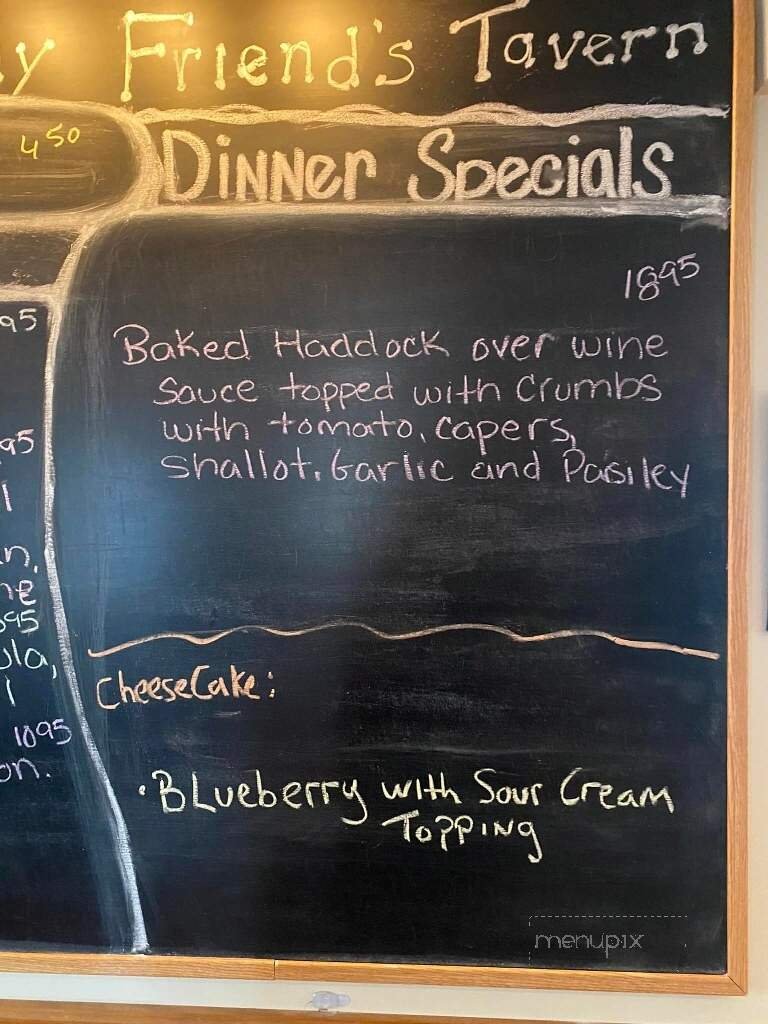 Friend's Tavern
4 50
Dinner Specials
1895
Baked Haddock over wine
Sauce topped with Crumbs
with tomato, capers,
Shallot, Garlic and Parsley
CheeseCake:
· BLueberry with Sour Cream
ToppiNg
1095
menupix